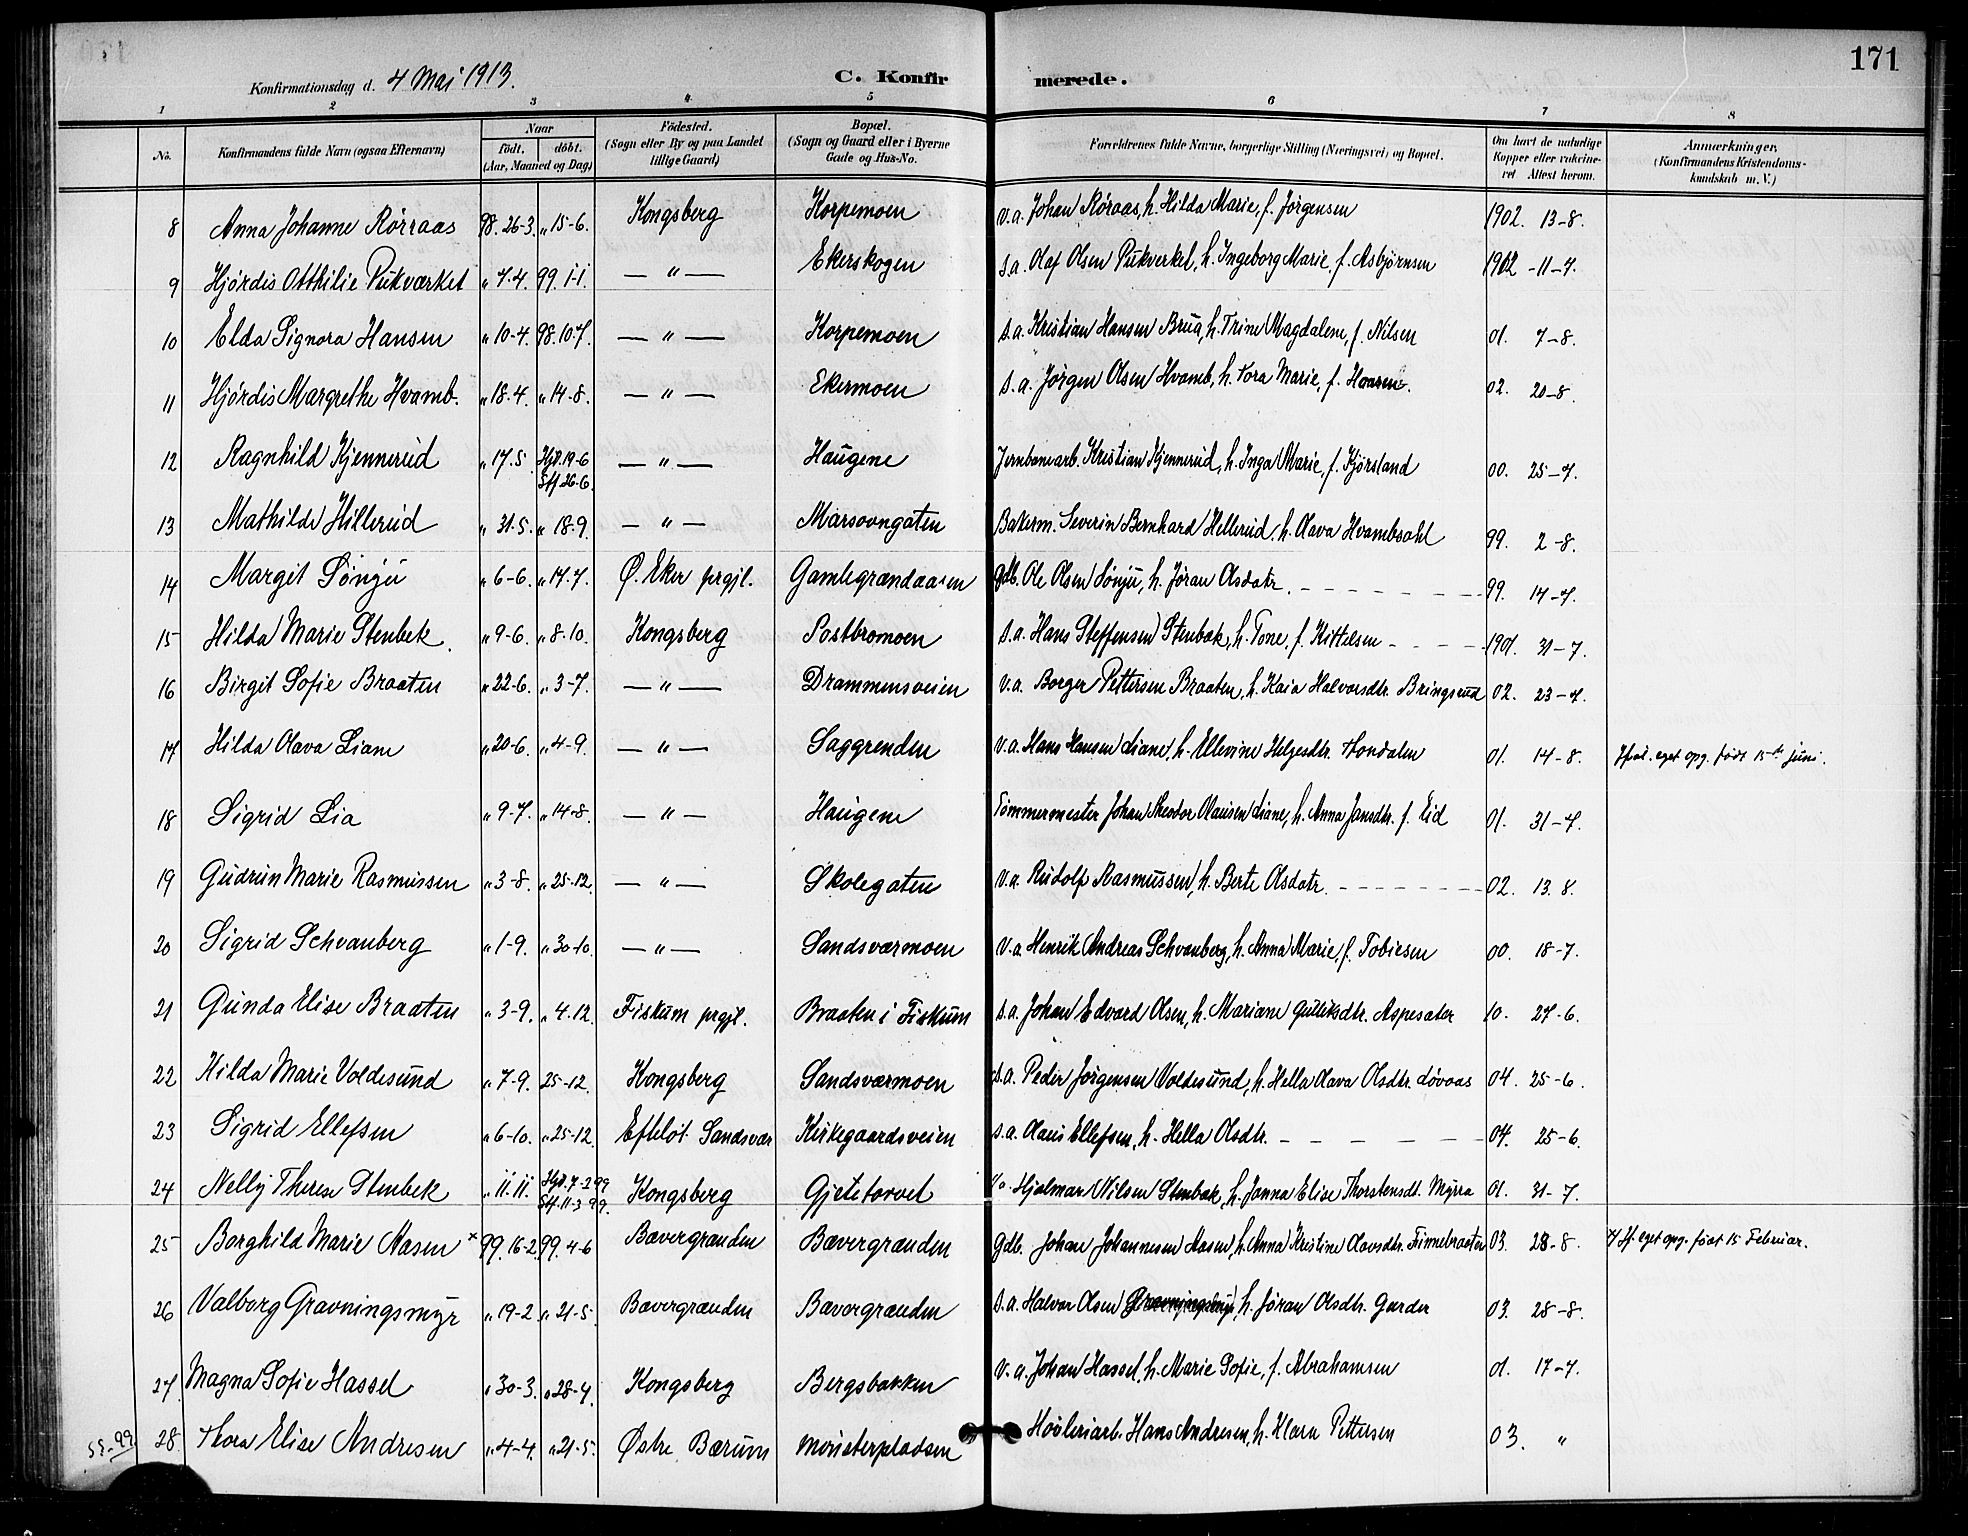 171
Konfirmationsdag d. 4 Mai 1913.
C. Konfirmerede.
1 2 3 4 5 6 7 8
No. Konfirmandens fulde Navn (ogsaa Efternavn) Naar født. døbt. (Aar, Maaned og Dag) Fødested. (Sogn eller By og paa Landet tillige Gaard) Bopæl. (Sogn og Gaard eller i Byerne Gade og Hus-No. Forældrenes fulde Navne, borgerlige Stilling (Næringsvei) og Bopæl. Om havt de naturlige Kopper eller vakcineret Attest herom. Anmærkninger, (Konfirmandens Kristendomskundskab m. V.)
8 Anna Johanne Rørraas 98. 26-3. „ 15-6. Kongsberg Korpemoen v.a. Johan Røraas, h. Hilda Marie, f. Jørgensen 1902. 13-8.
9 Hjørdis Otthilie Pukværket „ 7.4. 99. 1-1. — „ — Ekerskogen s.a. Olaf Olsen Pukverket, h. Ingeborg Marie, f. Asbjørnsen 1902 -11-7.
10 Elda Signora Hansen „ 10-4. 98. 10-7. — „ — Korpemoen s.a. Kristian Hansen Brua, h. Trine Magdalene, f. Nilsen 01. 7-8.
11 Hjørdis Margrethe Hvamb. „ 18.4. „ 14-8. — „ — Ekermoen s.a. Jørgen Olsen Hvamb, h. Tora Marie, f. 02. 20-8.
12 Ragnhild Kjennerud „ 17.5. Hjd. 19-6 Stf. 26-6. — „ — Haugene Jernbanearb. Kristian Kjennerud, h. Inga Marie, f. Kjørsland 00. 25-7.
13 Mathilde Hillerud „ 31-5. „ 18-9. — „ — Marsovngaten Bakerm. Severin Bernhard Hellerud, h. Olava Hvambsahl 99. 2-8.
14 Margit Sønju „ 6-6. „ 17.7. Ø. Eker prgjl. Gamlegrændaasen Gdb. Ole Olsen Sønju, h. Jøran Olsdatr. 99. 14-7.
15 Hilda Marie Stenbek. „ 9-6. „ 8.10. Kongsberg Postbromoen s.a. Hans Steffensen Stenbæk, h. Tone, f. Kittelsen 1901. 31-7.
16 Birgit Sofie Braaten „ 22-6. „ 3-7. — „ — Drammensveien v.a. Borger Pettersen Braaten, h. Kaia Halvorsdtr. Bringsrud 02. 23-7.
17 Hilda Olava Liane „ 20-6. „ 4-9. — „ — Saggrenden v.a. Hans Hansen Liane, h. Ellevine Helgesdtr. Tondalen 01. 14-8. eget opg. født 15-de juni.
18 Sigrid Lia „ 9-7. „ 14-8. — „ — Haugene Tømmermester Johan Theodor Olausen Liane, h. Anna Jansdtr. f. Eid 01. 31-7.
19 Gudrun Marie Rasmussen „ 3-8. „ 25-12. — „ — Skolegaten v.a. Rudolf Rasmussen, h. Berte Olsdatr. 02. 13. 8.
20 Sigrid Schvanberg „ 1-9. „ 30-10. — „ — Sandsværmoen v.a. Henrik Andreas Schvanberg, h. Anna Marie, f. Tobiesen 00. 18-7.
21 Gunda Elise Braaten „ 3-9. „ 4.12. Fiskum prgjl. Braaten i Fiskum s.a. Johan Edvard Olsen, h. Mariane Gulliksdtr. Aspesæter 10. 27-6.
22 Hilda Marie Voldesund „ 7-9. 25-12. Kongsberg Sandsværmoen s.a. Peder Jørgensen Voldesund, h. Hella Olava Olsdtr. Løvaas 04. 25-6.
23 Sigrid Ellefsen „ 6-10. „ 25-12. Efteløt Sandsvær Kirkegaardsveien s.a. Olaus Ellefsen, h. Hella Olsdtr. 04. 25-6.
24 Nelly Therese Stenbek „ 11.11. Hjd. 7-2 99 Stf. 11-3 99. Kongsberg Gjetetorvet v.a. Hjalmar Nilsen Stenbæk, h. Janna Elise Thorstensdt. Myrra 01. 31-7.
25 Borghild Marie Aasen × 99. 16-2. 99. 4-6 Bævergrænden Bævergrænden Gdb. Johan Johannesen Aasen, h. Anna Kristine Olavsdtr. Finnebraaten 03. 28-8. eget opg. født 15 Februar.
26 Valborg Gravningsmyr „ 19-2. „ 21-5. Bævergrænden Bævergrænden s.a. Halvor Olsen Gravningsmyr, h. Jøran Olsdtr. Garder 03. 28-8.
27. Magna Sofie Hassel „ 30-3. „ 28-4. Kongsberg Bergsbakken v.a. Johan Hassel, h. Marie Sofie, f. Abrahamsen 01. 17-7.
28 Thora Elise Andresen „ 4-4. „ 21-5. Østre Bærum Mønsterpladsen Høvleriarb. Hans Andresen, h. Klara Pettersen 03. „